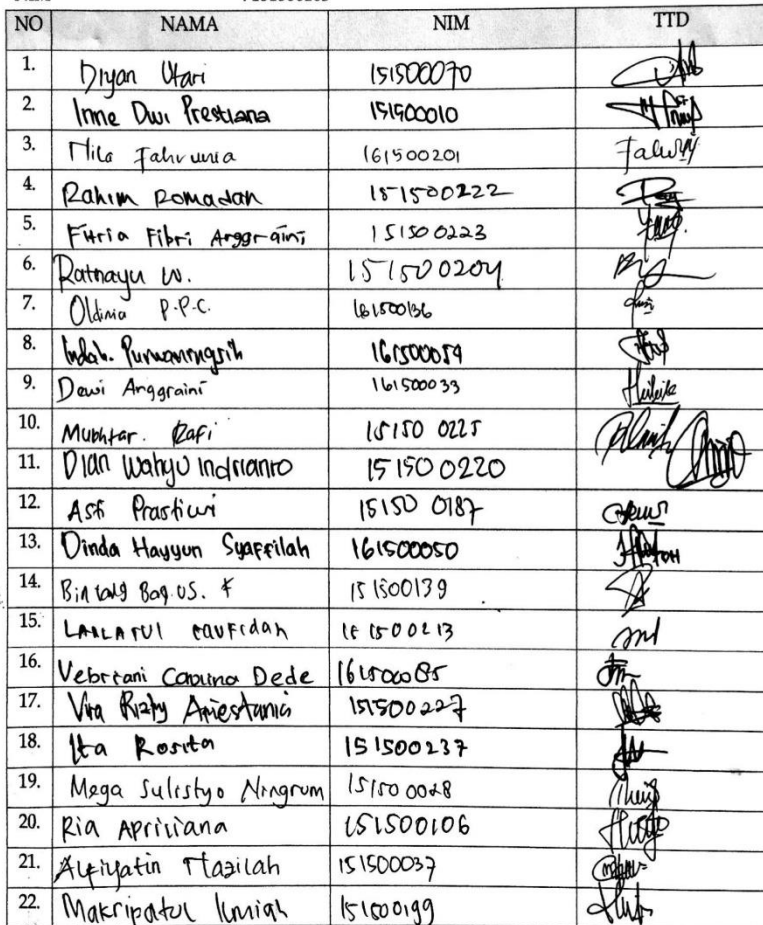 NO NAMA NIM TTD
1. Diyan Utari 151500070
2. Inne Dwi Prestiana 151500010
3. Mila Fahrunia 161500201
4. Rahim Romadan 151500222
5. Fitria Fibri Anggraini 151500223
6. Ratnayu W. 151500204
7. Oldinia P.P.C. 161500136
8. Indah. Purwaningsih 161500054
9. Dewi Anggraini 161500033
10. Mubhtar. Rafi 15150 0225
11. Dian Wahyu Indrianto 15150 0220
12. Asti Prastiwi 15150 0187
13. Dinda Hayyun Syaffilah 161500050
14. Bintang Bagus. 151500139
15. 
16. Dede
17. Vira Rizky 151500227
18. Ita Rosita 151500237
19. Mega Sulistyo Ningrum 151500028
20. Ria Apriliana 151500106
21. Alfiyatin Nazilah 151500037
22. Makripatul 151500199